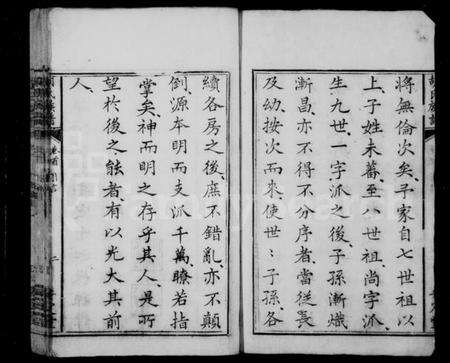 將無倫次矣予家自七世祖以
上子姓未蕃至八世祖尚字派
生九世一字派之後子孫漸熾
漸昌亦不得不分序者當從長
及幼按次而來使世〻子孫各
續各房之後庶不錯亂亦不顛
倒源本明而支派千萬瞭若指
掌矣神而明之存乎其人是所
望於後之能者有以光大其前
人